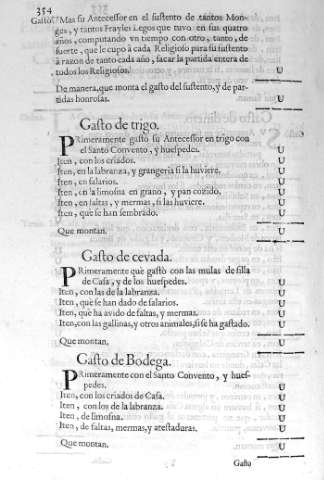 354
Gasto. Mas su Antecessor en el sustento de tantos Mon-
ges, y tantos Frayles legos que tuvo en sus quatro
años, computando vn tiempo con otro, tanto, de
suerte, que le cupo à cada Religioso para su sustento
à razon de tanto cada año, sacar la partida entera de
todos los Religiosos. U
De manera, que monta el gasto del sustento, y de par-
tidas honrosas. U
Gasto de trigo.
PRimeramente gastò su Antecessor en trigo con
el Santo Convento, y huespedes. U
Iten, con los criados. U
Iten, en la labranza, y grangeria si la huviere. U
Iten, en salarios. U
Iten, en la limosna en grano, y pan cozido. U
Iten, en faltas, y mermas, si las huviere. U
Iten, que se han sembrado. U
Que montan. U
Gasto de cevada.
PRimeramente què gastò con las mulas de silla
de Casa, y de los huespedes. U
Iten, con las de la labranza. U
Iten, que se han dado de salarios. U
Iten, que ha avido de faltas, y mermas. U
Iten, con las gallinas, y otros animales, si se ha gastado. U
Que montan. U
Gasto de Bodega.
PRimeramente con el Santo Convento, y hues-
pedes. U
Iten, con los criados de Casa. U
Iten, con los de la labranza. U
Iten, de limosna. U
Iten, de faltas, mermas, y atestaduras. U
Que montan. U
Gasto